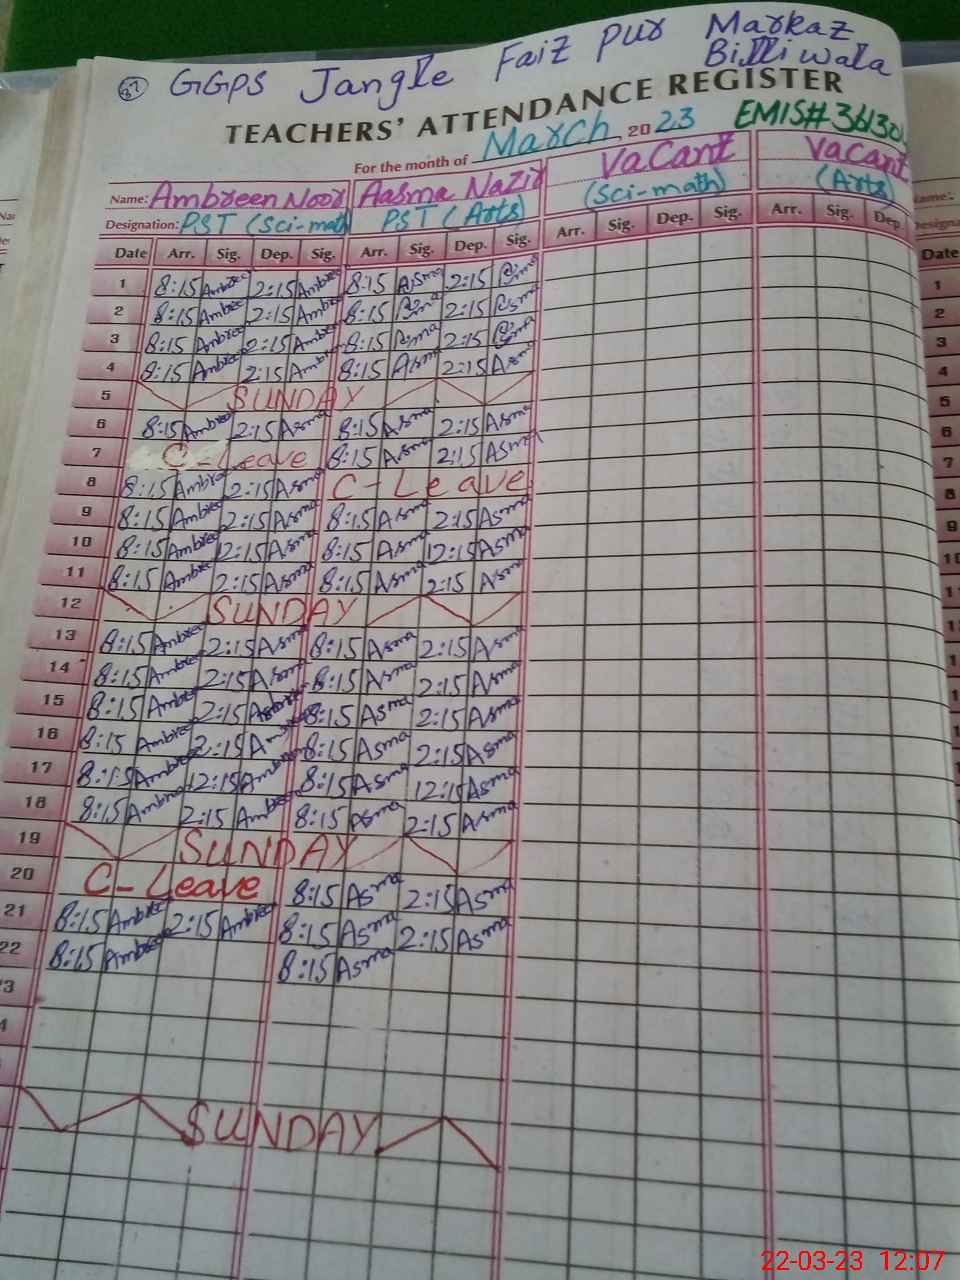 67 GGPS Jangle Faiz pur Markaz
Billi wala
TEACHERS' ATTENDANCE REGISTER
For the month of March 2023 EMIS#
Name: Ambreen Noor Aasma Nazir Vacant Vacant
Designation: PST (Sci-math) PST (Arts) (Sci-math) (Arts)
Date Arr. Sig. Dep. Sig. Arr. Sig. Dep. Sig. Arr. Sig. Dep. Sig. Arr. Sig. Dep.
1 8:15 Ambreen 2:15 Ambreen 8:15 Asma 2:15 Asma
2 8:15 Ambreen 2:15 Ambreen 8:15 Asma 2:15 Asma
3 8:15 Ambreen 2:15 Ambreen 8:15 Asma 2:15 Asma
4 8:15 Ambreen 2:15 Ambreen 8:15 Asma 2:15 Asma
5 SUNDAY
6 8:15 Ambreen 2:15 Asma 8:15 Asma 2:15 Asma
7 C-Leave 8:15 Asma 2:15 Asma
8 8:15 Ambreen 2:15 Asma C-Leave
9 8:15 Ambreen 2:15 Asma 8:15 Asma 2:15 Asma
10 8:15 Ambreen 12:15 Asma 8:15 Asma 12:15 Asma
11 8:15 Ambreen 2:15 Asma 8:15 Asma 2:15 Asma
12 SUNDAY
13 8:15 Ambreen 2:15 Asma 8:15 Asma 2:15 Asma
14 8:15 Ambreen 2:15 Asma 8:15 Asma 2:15 Asma
15 8:15 Ambreen 2:15 8:15 Asma 2:15 Asma
16 8:15 Ambreen 2:15 Ambreen 8:15 Asma 2:15 Asma
17 8:15 Ambreen 12:15 Ambreen 8:15 Asma 12:15 Asma
18 8:15 Ambreen 2:15 Ambreen 8:15 Asma 2:15 Asma
19 SUNDAY
20 C-Leave 8:15 Asma 2:15 Asma
21 8:15 Ambreen 2:15 Ambreen 8:15 Asma 2:15 Asma
22 8:15 Ambreen 8:15 Asma
SUNDAY
22-03-23 12:07